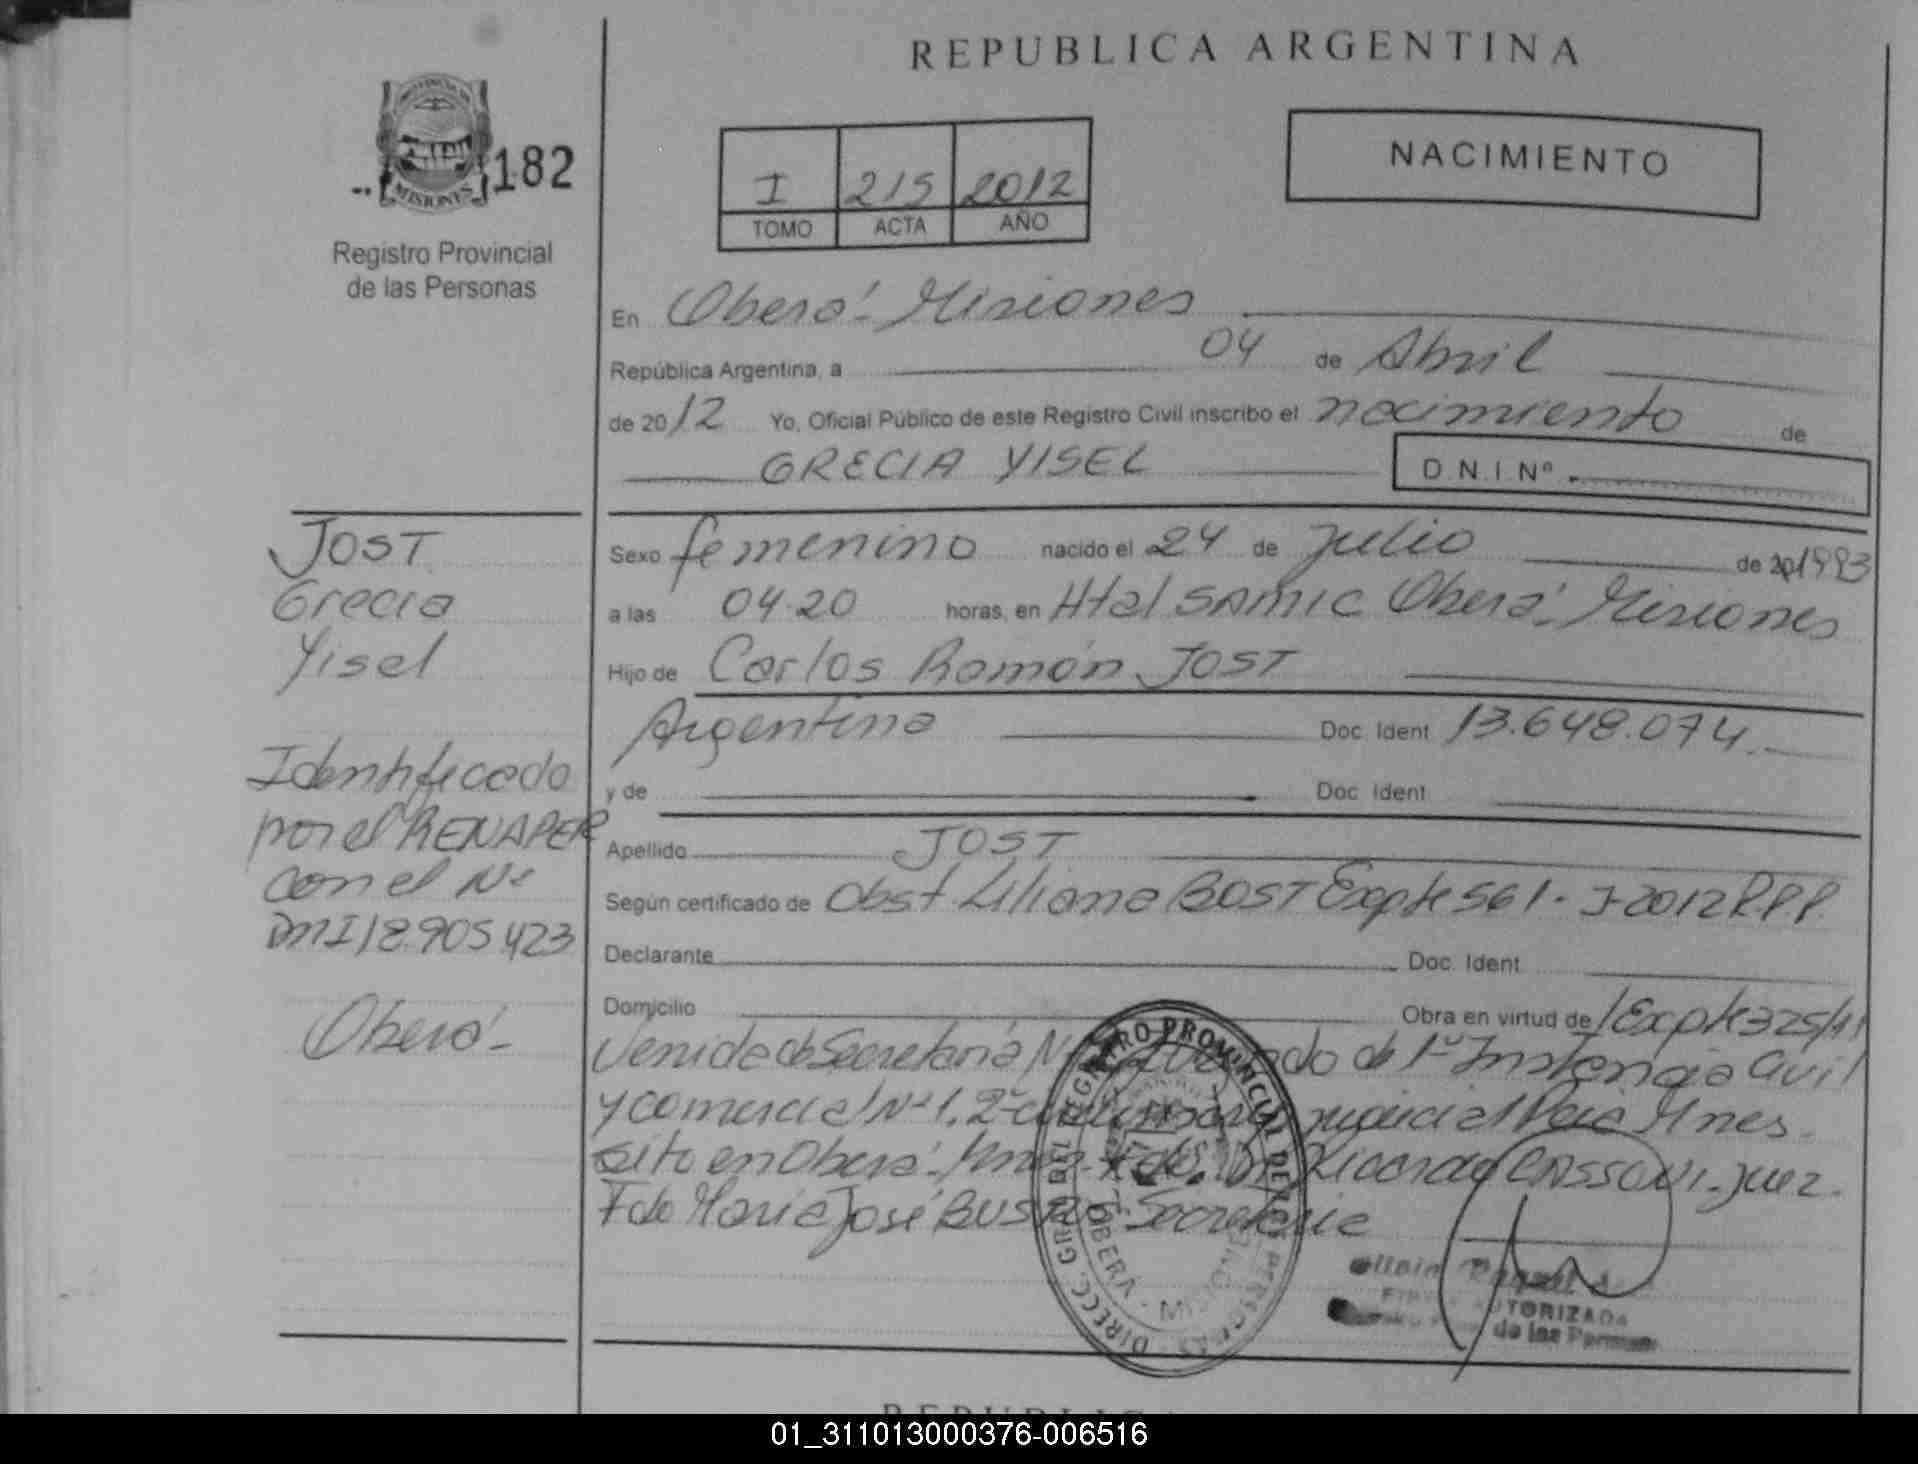 REPUBLICA ARGENTINA
PROVINCIA DE
MISIONES
182
Registro Provincial
de las Personas
I 215 2012
TOMO ACTA AÑO
NACIMIENTO
En Oberá - Misiones
República Argentina, a 04 de Abril
de 2012 Yo, Oficial Público de este Registro Civil inscribo el nacimiento de
GRECIA YISEL D.N.I. Nº
JOST
Grecia
Yisel
Identificado
por el RENAPER
con el Nº
DNI 18.905.423
Oberá -
Sexo femenino nacido el 24 de Julio de 20 1993
a las 04.20 horas, en Htal SAMIC Oberá - Misiones
Hijo de Carlos Ramón JOST
Argentina Doc. Ident 13.648.074.
y de Doc. Ident
Apellido JOST
Según certificado de Obst Liliana BOST Expte 561 - J-2012 R.P.P.
Declarante Doc. Ident.
Domicilio Obra en virtud de / Expte 325/11
Venida de Secretaria Juzgado de 1º Instancia Civil
y Comercial Nº 1, 2º judicial Pcia Mnes.
sito en Oberá - Mnes. Fdo. Dr Ricardo CASSONI - Juez.
Fdo Maria José BUSTOS Secretaria
DIRECC. GRAL DEL REGISTRO PROVINCIAL DE LAS PERSONAS
OBERÁ - MISIONES
Raquel
FIRMA AUTORIZADA
de las Personas
01_311013000376-006516